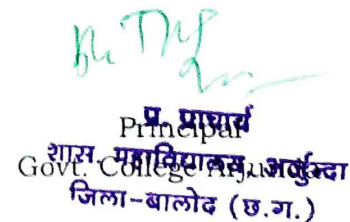 प्र. प्राचार्य
Principal
शास. महाविद्यालय, अर्जुन्दा
Govt. College Arjunda
जिला-बालोद (छ.ग.)